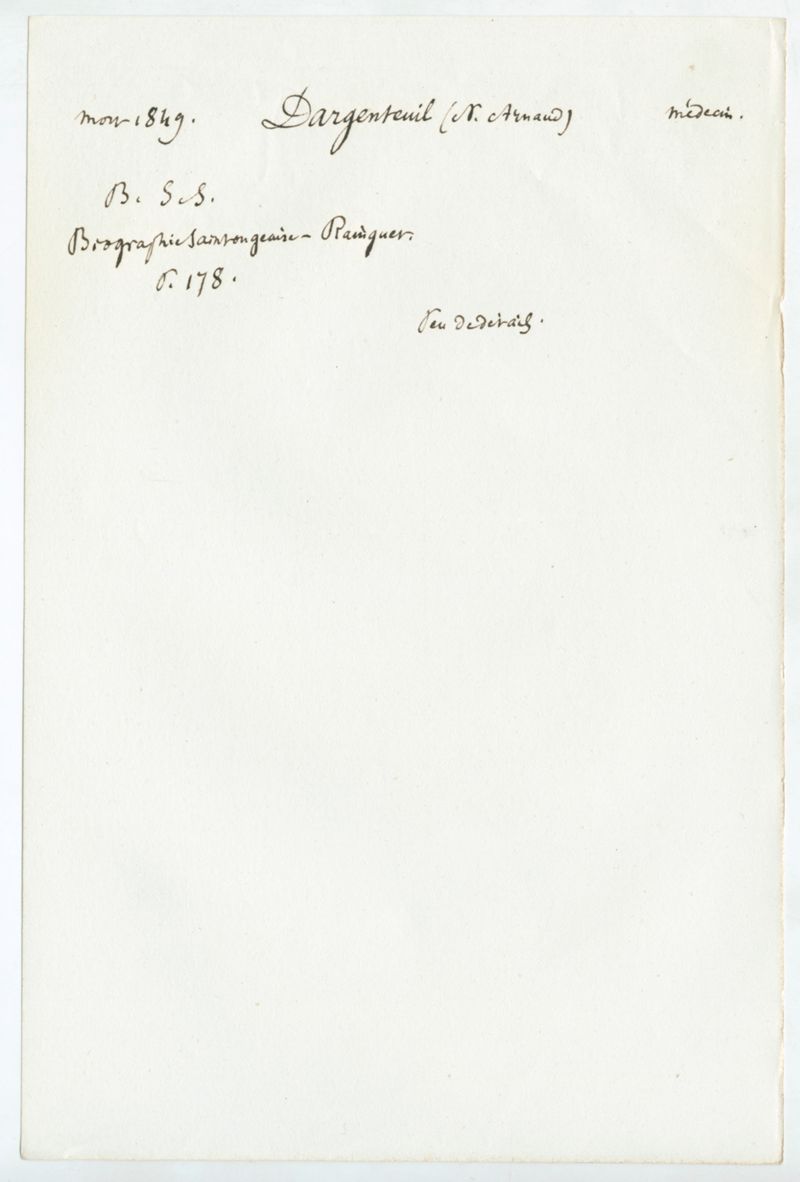 mort 1849. Dargenteuil (N. Arnaud) médecin.
B. S. S.
Biographie Saintongeaise - Rainguet.
P. 178.
Peu de détails.